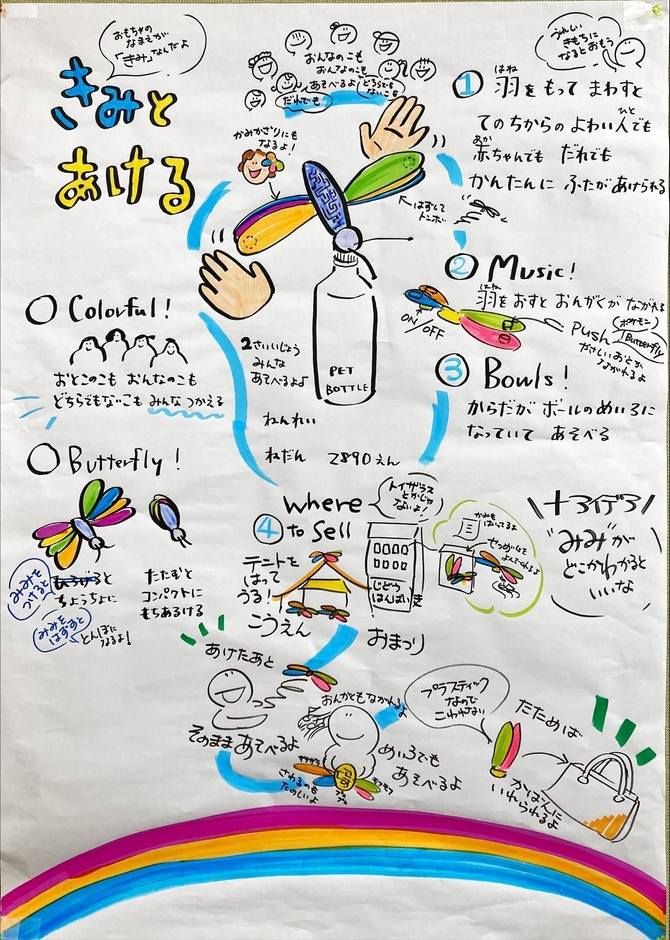 おもちゃの
なまえが
「きみ」なんだよ
きみと
あける
おんなのこも
おんなのこも
あそべるよ!
どちらでも
ないこも
だれでも
かみかざりにも
なるよ!
はずして
トンボ
うれしい
きもちに
なるとおもう
1 羽をもって まわすと
はね
てのちからの よわい人でも
ひと
赤ちゃんでも だれでも
あか
かんたんに ふたがあけられる
2 Music!
羽をおすと おんがくが ながれる
はね
ON/OFF
Push
(ポケモン)
Butterfly
やさしいおとが
ながれるよ
3 Bowls!
からだが ボールのめいろに
なっていて あそべる
Colorful!
おとこのこも おんなのこも
どちらでもないこも みんなつかえる
2さいいじょう
みんな
あそべるよ
ねんれい
ねだん 2890えん
PET
BOTTLE
Butterfly!
みみを
つけると
ちょうちょに
みみを
はずすと
とんぼになるよ!
たたむと
コンパクトに
もちあるける
4 Where
to Sell
トイザラス
とかじゃ
ないよ!
テントを
はって
うる!
こうえん
じどう
はんばいき
おまつり
かみも
はってるよ
せつめいも
よんでくれるよ
"みみ"が
どこかわかると
いいな
あけたあと
そのまま あそべるよ
おんがくもながれるよ
めいろでも
あそべるよ
さわるのも
たのしいよ
プラスティック
なので
こわれない
たためば
かばんに
いれられるよ